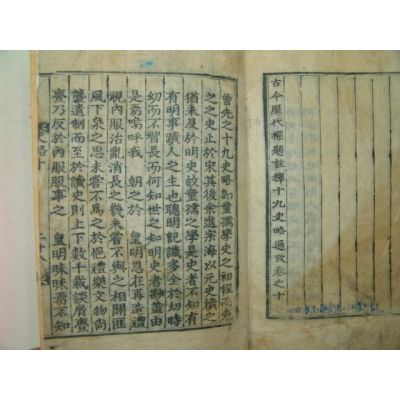 古今歷代標題註釋十九史略通攷卷之十
曾先之十九史略卽童孺學史之初程而先
之之史止於宋其後余進宗海以元史續之
猶未及於明史故童孺之學是史者不知有
有明事蹟人之生也聰明記識多全於幼時
幼而不習長而何知世之知明史者尠盖由
是焉嗚呼我 朝之於 皇明恩在再造禮
視內服治亂消長之幾未嘗不與之相關匪
風下泉之思未嘗不爲之於悒禮樂文物尙
襲遺制而至於讀史則上下數千載談屑亹
亹乃反於內服服事之 皇明昧昧焉不知